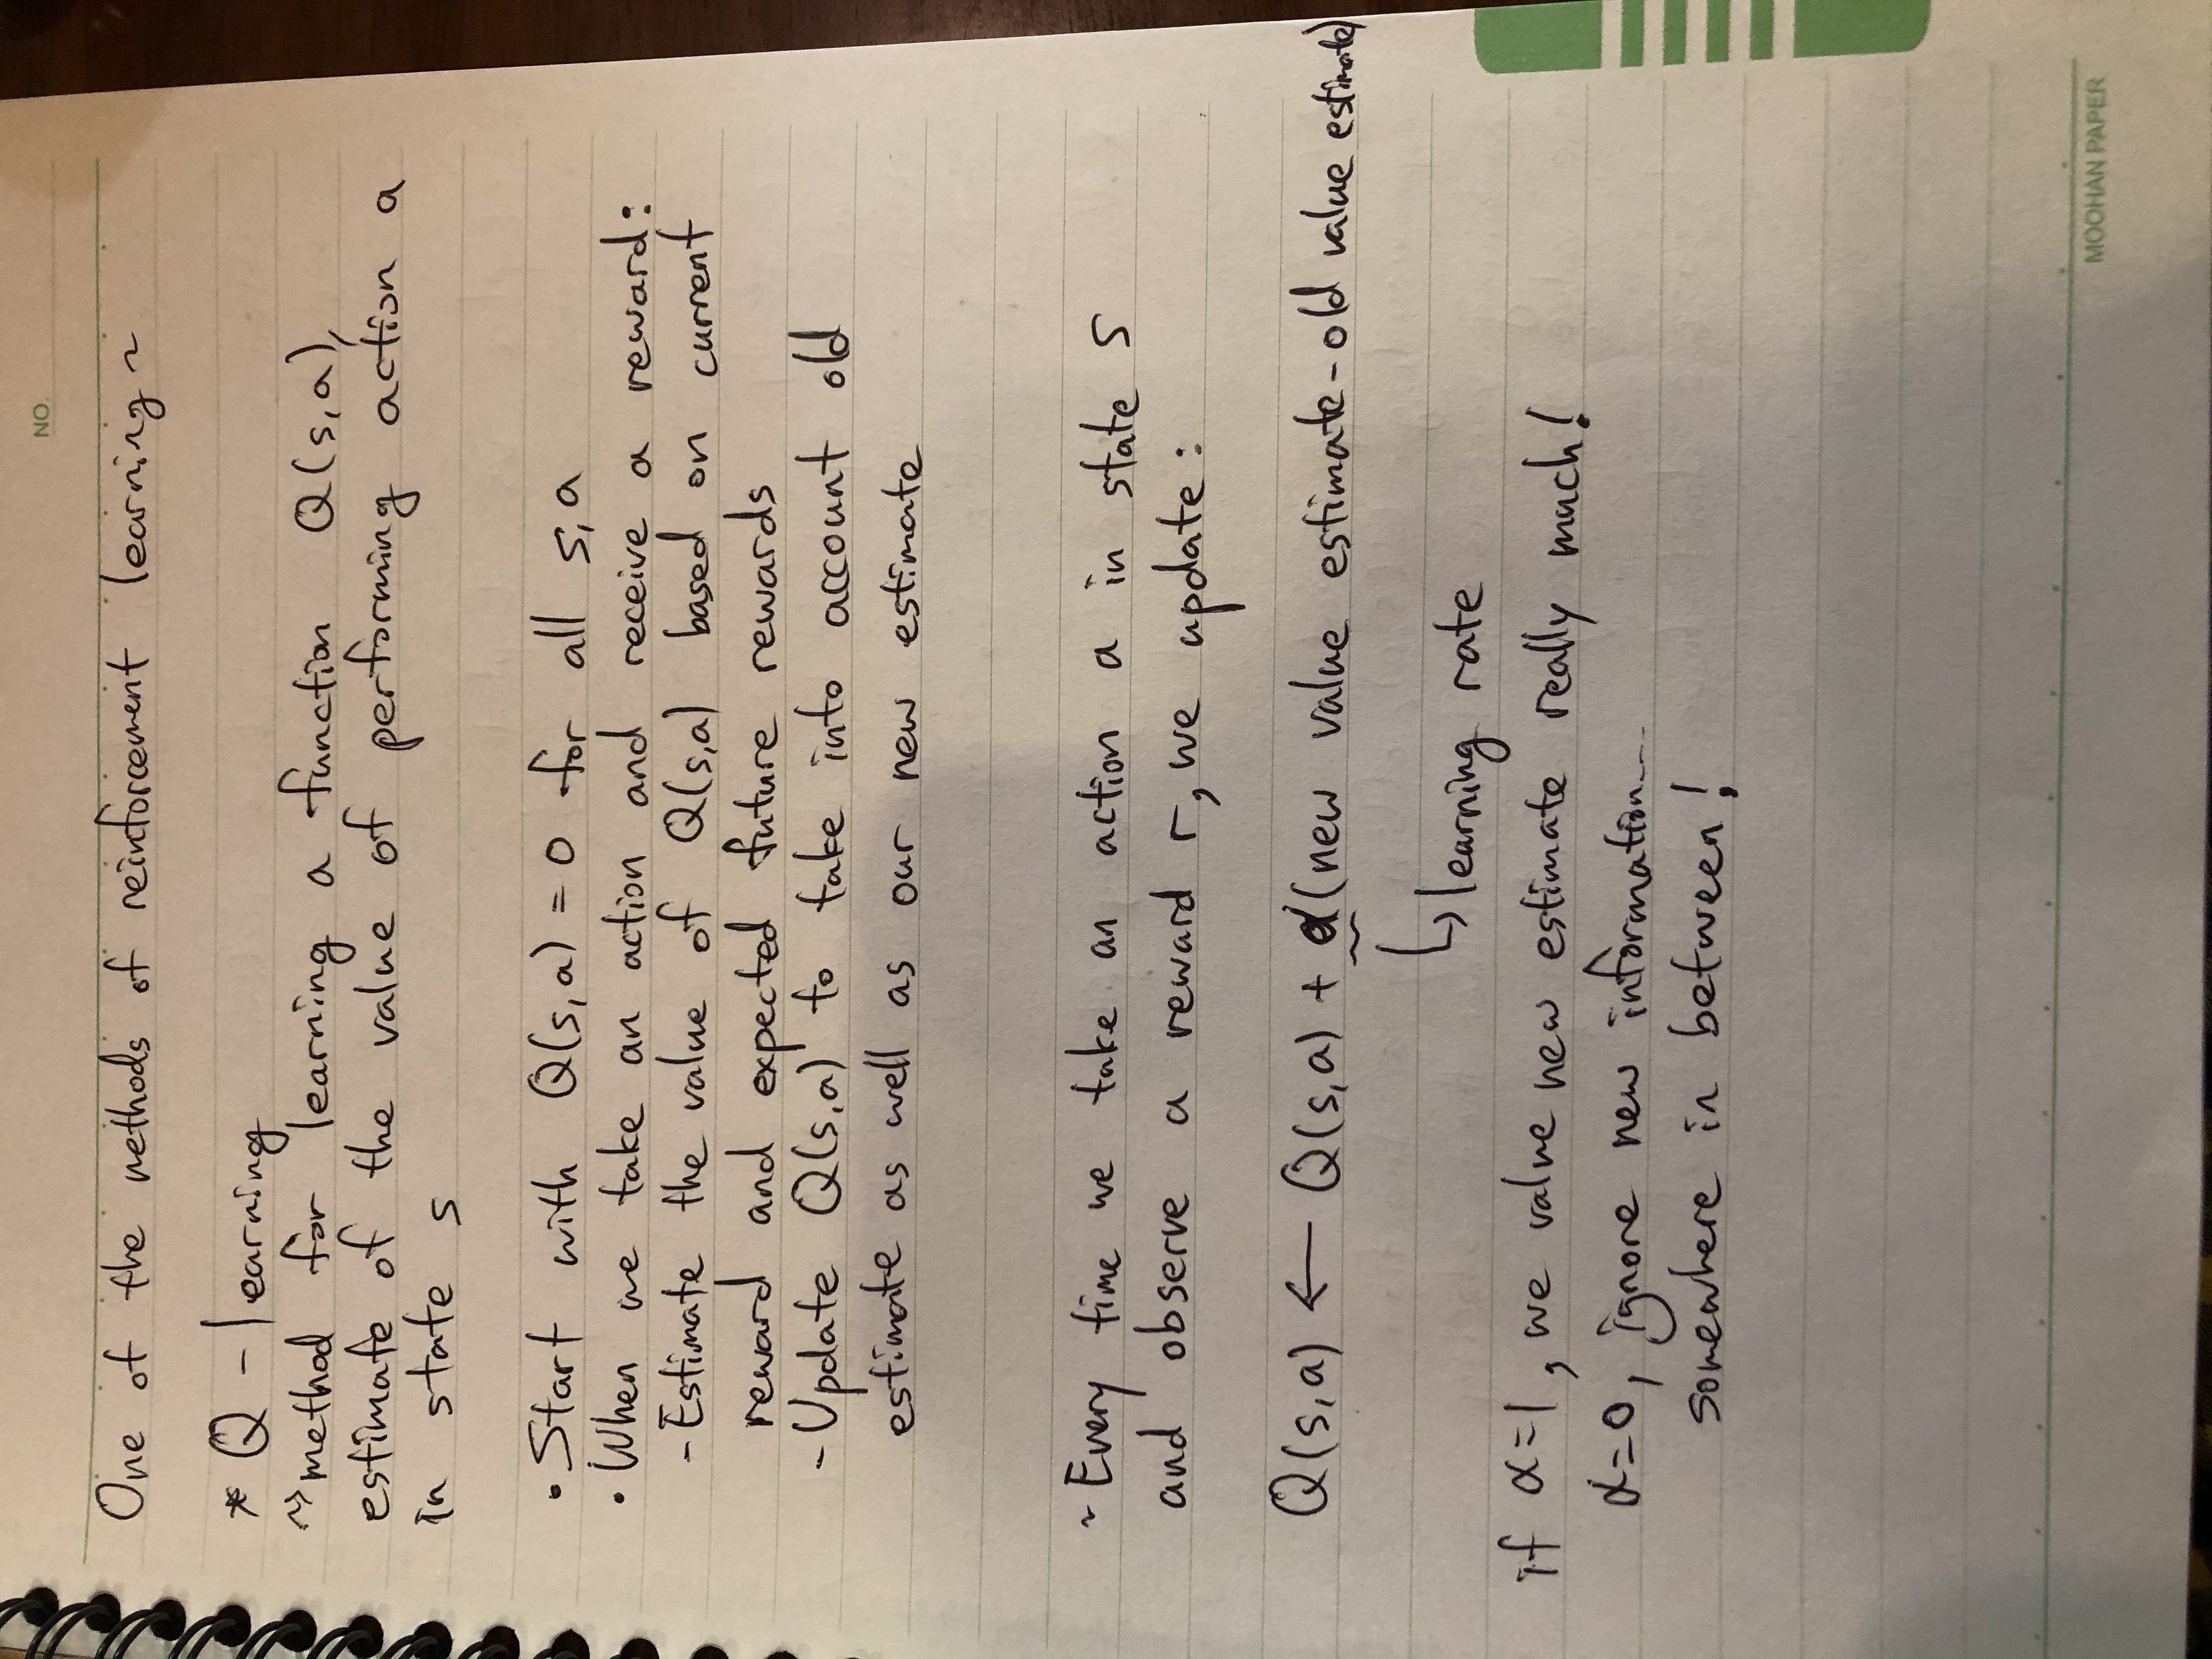 NO.
One of the methods of reinforcement learning ~
* Q - learning
~> method for learning a function Q(s,a),
estimate of the value of performing action a
in state s
• Start with Q(s,a) = 0 for all s,a
• When we take an action and receive a reward:
- Estimate the value of Q(s,a) based on current
reward and expected future rewards
- Update Q(s,a) to take into account old
estimate as well as our new estimate
~ Every time we take an action a in state s
and observe a reward r, we update:
Q(s,a) ← Q(s,a) + α(new value estimate - old value estimate)
↳ learning rate
if α=1, we value new estimate really much!
α=0, ignore new information....
somewhere in between!
MOOHAN PAPER